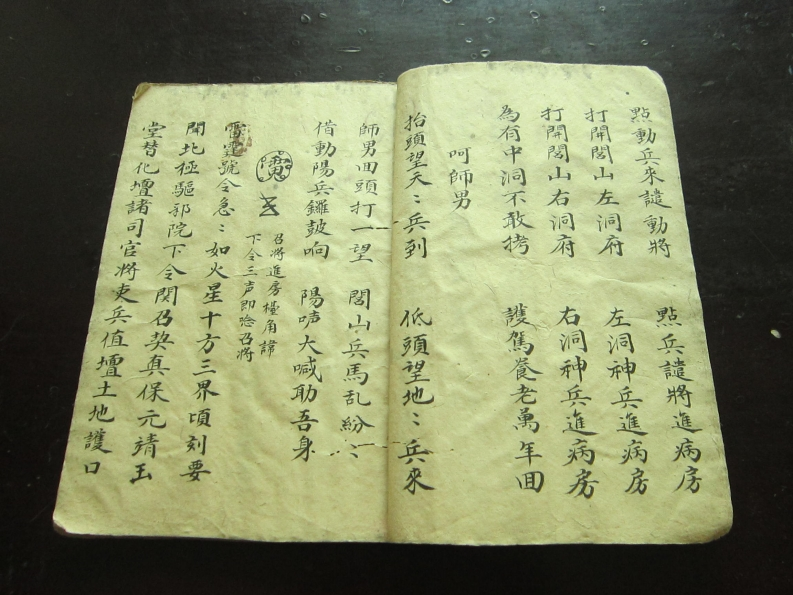 點動兵來譴動將　點兵譴將進病房
打開閭山左洞府　左洞神兵進病房
打開閭山右洞府　右洞神兵進病房
為有中洞不敢拷　護駕養老萬年回
呵師男
抬頭望天〻兵到　低頭望地〻兵來
師男回頭打一望　閭山兵馬乱紛〻
借動陽兵鑼鼓响　陽声大喊助吾身
召將進房檯角諱
下令三声即唸召將
雷霆號令急〻如火星十方三界頃刻要
開北極驅邪院下令関召契真保元靖玉
堂替化壇諸司官將吏兵值壇土地護口